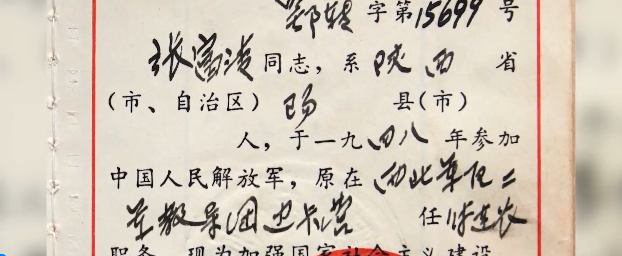 字第15699号
张富清同志，系陕西省
（市、自治区） 县（市）
人，于一九四八年参加
中国人民解放军，原在西北军区二
军教导团 营 任付连长
职务，现为加强国家社会主义建设